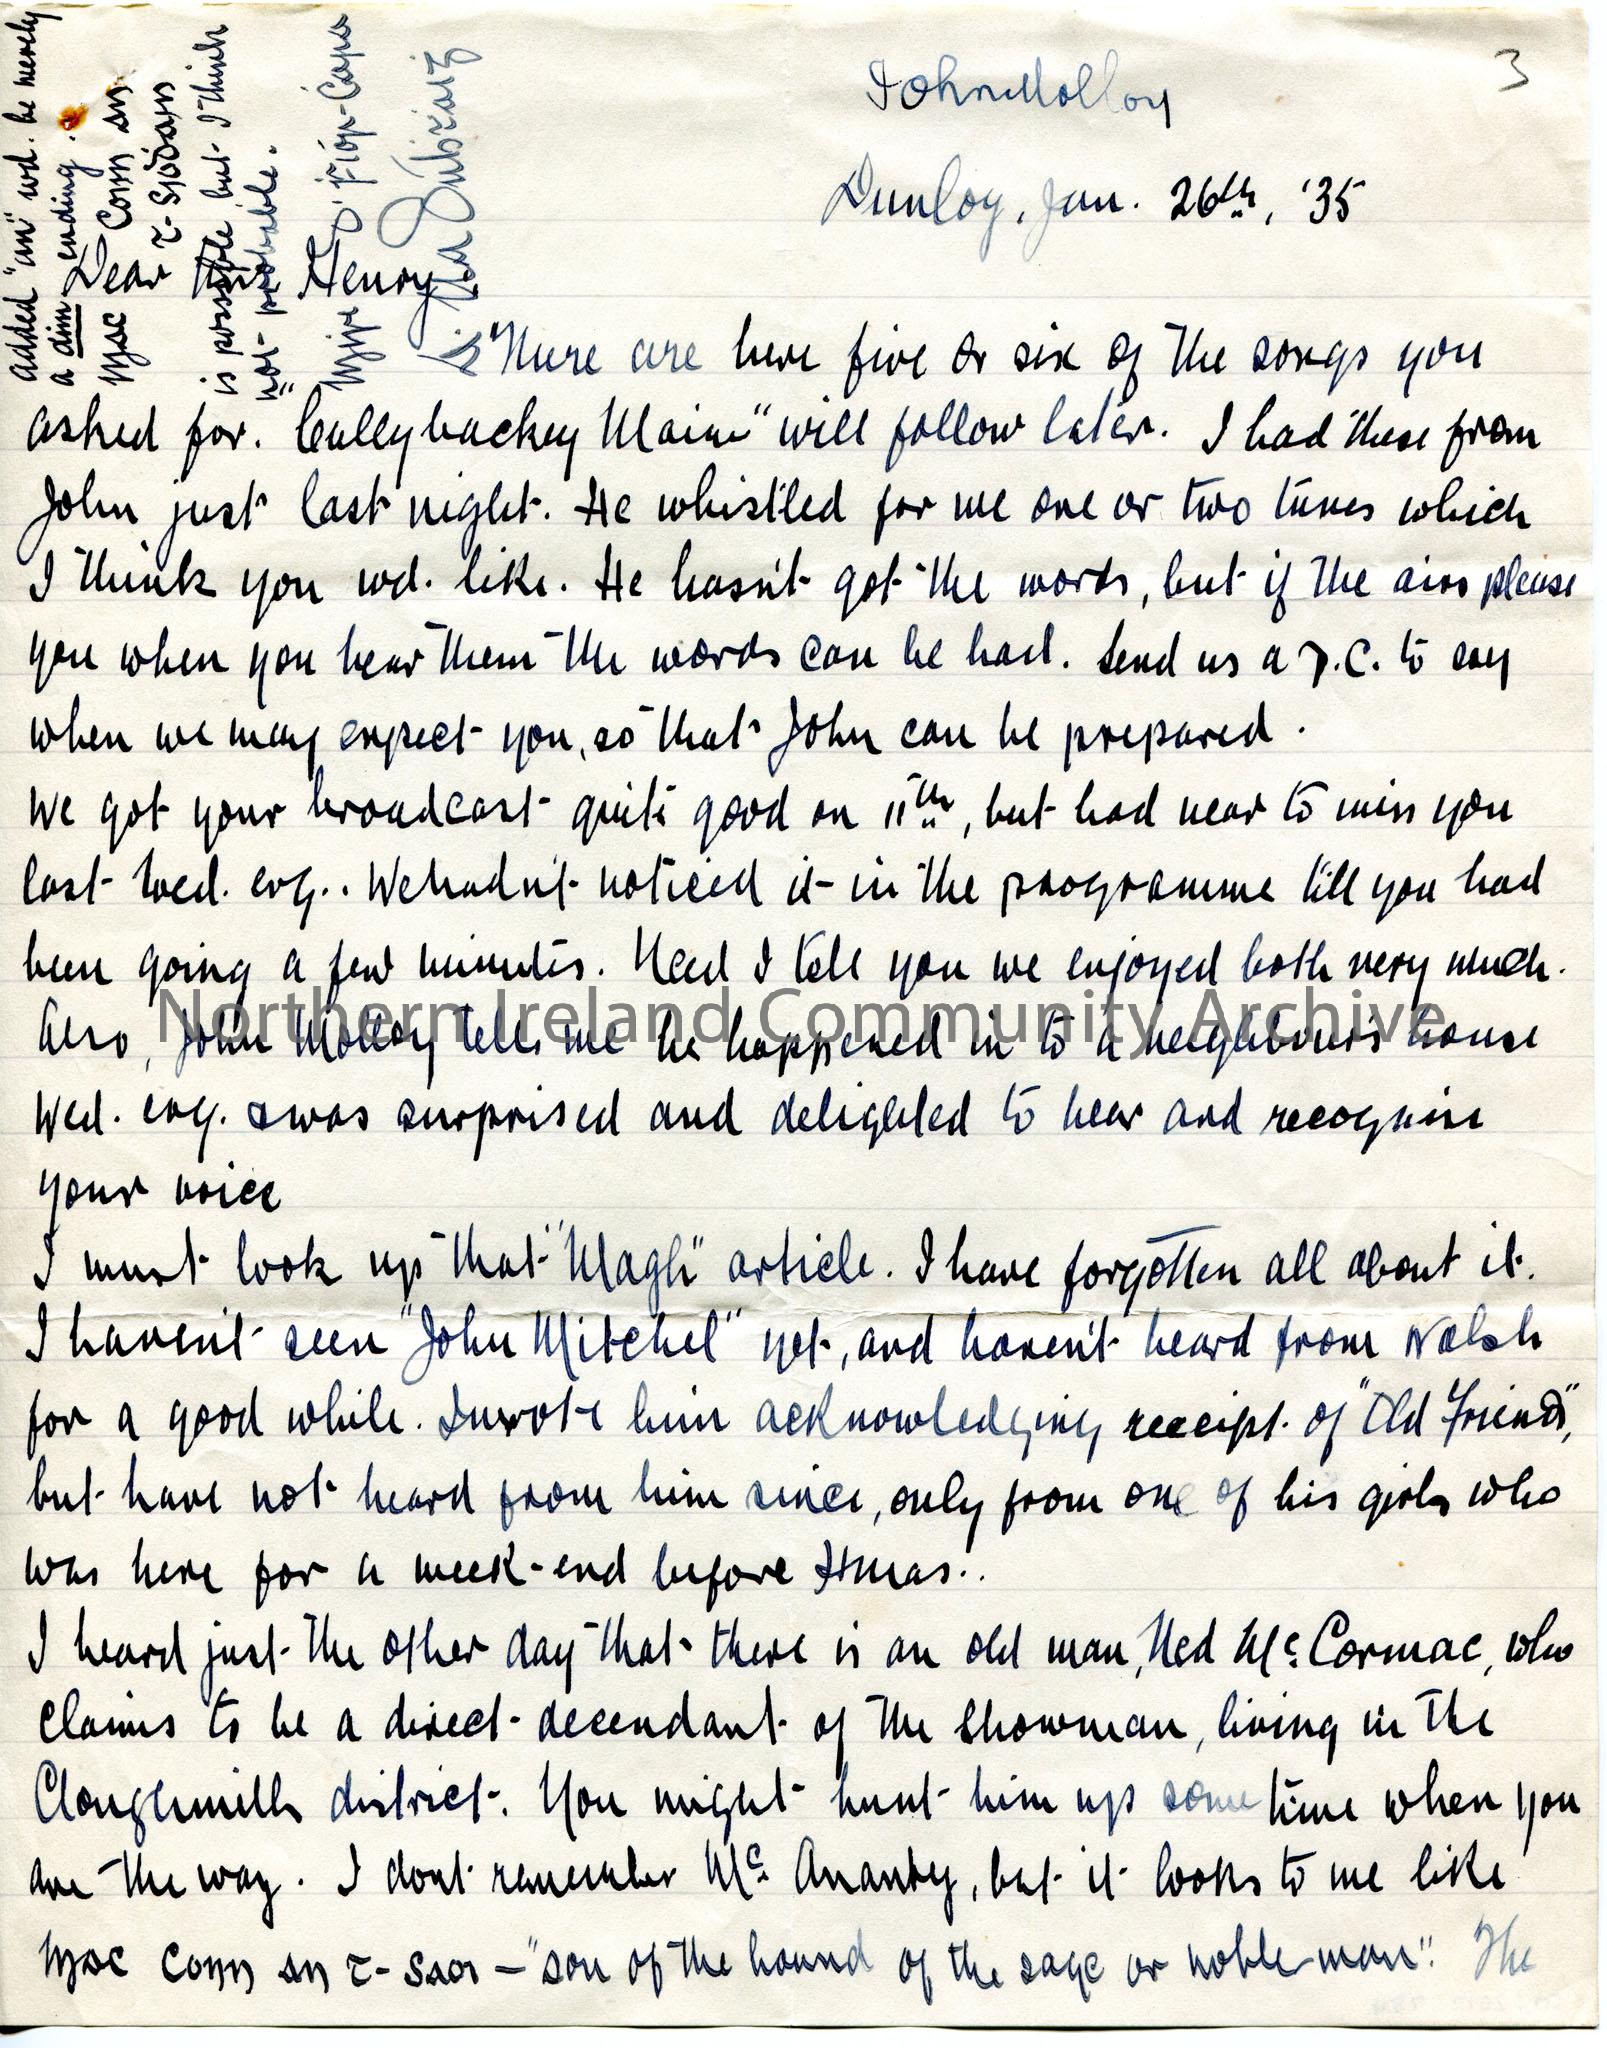 3
John Molloy
Dunloy, Jan. 26th, '35
Dear Mr Henry
There are here five or six of the songs you
asked for. "Cullybackey Maine" will follow later. I had these from
John just last night. He whistled for me one or two tunes which
I think you wd. like. He hasn't got the words, but if the airs please
you when you hear them the words can be had. Send us a P.C. to say
when we may expect you, so that John can be prepared.
We got your broadcast quite good on 11th, but had near to miss you
last Wed. evg.. We hadn't noticed it in the programme till you had
been going a few minutes. Need I tell you we enjoyed both very much.
Also, John Molloy tells me he happened in to a neighbour's house
Wed. evg. & was surprised and delighted to hear and recognise
your voice
I must look up that "Magh" article. I have forgotten all about it.
I haven't seen "John Mitchel" yet, and haven't heard from Walsh
for a good while. I wrote him acknowledging receipt of "Old Friends",
but have not heard from him since, only from one of his girls who
was here for a week-end before Xmas..
I heard just the other day that there is an old man, Ned McCormac, who
claims to be a direct decendant of the showman, living in the
Cloughmills district. You might hunt him up some time when you
are the way. I dont remember Mc Ananty, but it looks to me like
Mac Conn an t-Saoi – "son of the hound of the sage or noble-man". The
added "an" wd. be merely
a dim ending.
Mac Conn an
t-Siodain
is possible but I think
not probable.
Mise, Fíor-Cara
Northern Ireland Community Archive